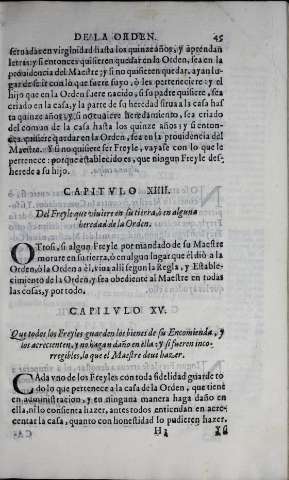 DE LA ORDEN. 45
seruadas en virginidad hasta los quinze años, y aprendan
letras: y si entonces quisieren quedar en la Orden, sea en la
prouidencia del Maestre; y si no quisieren quedar, ayan lu-
gar de se ir con lo que fuere suyo, ò les perteneciere: y el
hijo que en la Orden fuere nacido, si su padre quisiere, sea
criado en la casa, y la parte de su heredad sirua a la casa has
ta quinze años: y si no tuuiere heredamiento, sea criado
del comun de la casa hasta los quinze años; y si enton-
ces quisiere quedar en la Orden, sea en la prouidencia del
Maestre. Y si no quisiere ser Freyle, vayase con lo que le
pertenece: porque establecido es, que ningun Freyle des-
herede a su hijo.
CAPITVLO XIIII.
Del Freyle que viuiere en su tierra, ò en alguna
heredad de la Orden.
OTrosi, si algun Freyle por mandado de su Maestre
morare en su tierra, ò en algun lugar que èl diò a la
Orden, ò la Orden a èl, viua alli segun la Regla, y Estable-
cimiento de la Orden, y sea obediente al Maestre en todas
las cosas, y por todo.
CAPITVLO XV.
Que todos los Freyles guarden los bienes de su Encomienda, y
los acrecienten, y no hagan daño en ella: y si fueren inco-
rregibles, lo que el Maestre deue hazer.
CAda vno de los Freyles con toda fidelidad guarde to
do lo que pertenece a la casa de la Orden, que tiene
en administracion, y en ninguna manera haga daño en
ella, ni lo consienta hazer, antes todos entiendan en acre-
centar la casa, quanto con honestidad lo pudieren hazer.